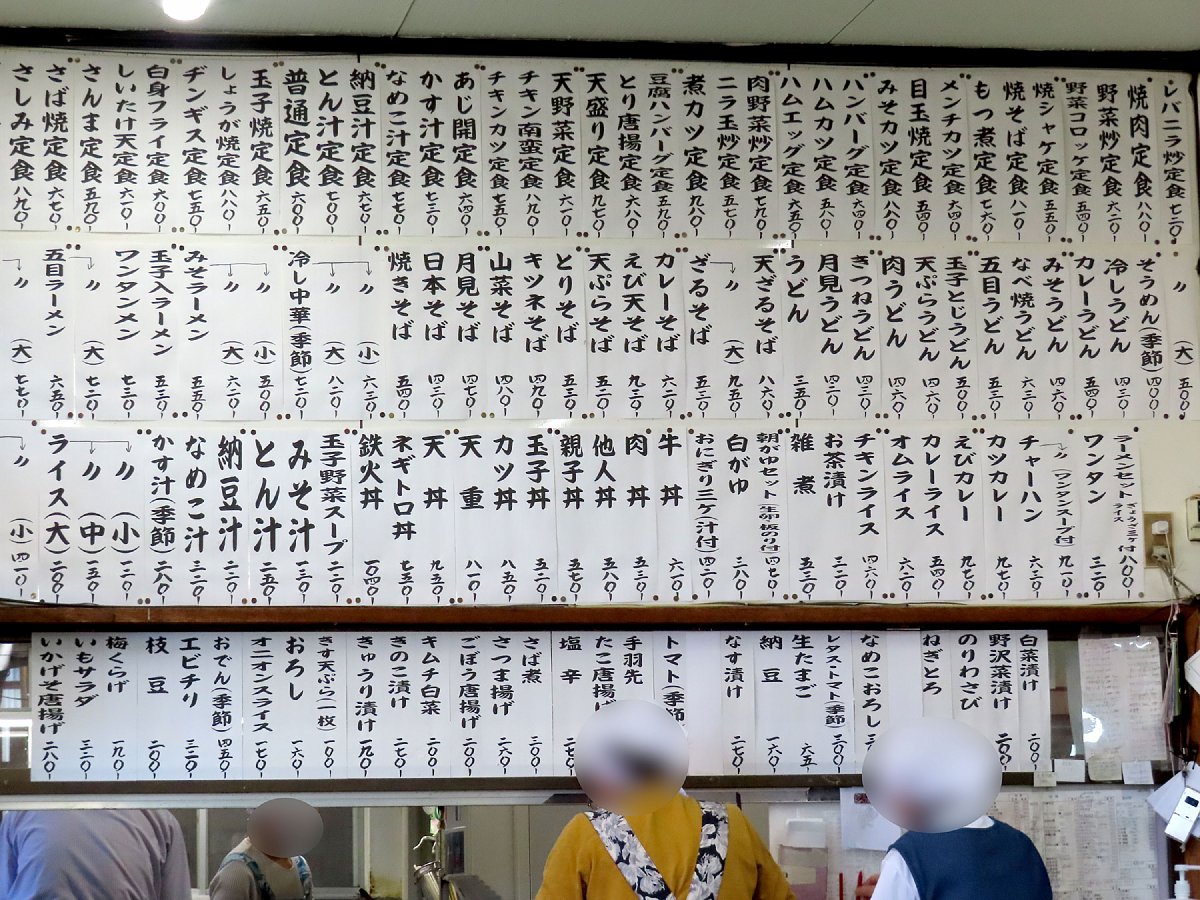 レバニラ炒定食 七二〇
焼肉定食 八八〇
野菜炒定食 六二〇
野菜コロッケ定食 五四〇
焼シャケ定食 五五〇
焼そば定食 八一〇
もつ煮定食 七六〇
メンチカツ定食 六四〇
目玉焼定食 五四〇
みそカツ定食 八八〇
ハンバーグ定食 六四〇
ハムカツ定食 五八〇
ハムエッグ定食 六五〇
肉野菜炒定食 七九〇
ニラ玉炒定食 五七〇
煮カツ定食 九八〇
豆腐ハンバーグ定食 五九〇
とり唐揚定食 六八〇
天盛り定食 九七〇
天野菜定食 六一〇
チキン南蛮定食 八九〇
チキンカツ定食 七五〇
あじ開定食 六四〇
かす汁定食 七三〇
なめこ汁定食 七七〇
納豆汁定食 六七〇
とん汁定食 七〇〇
普通定食 六〇〇
玉子焼定食 六五〇
しょうが焼定食 八八〇
ヂンギス定食 七五〇
白身フライ定食 六〇〇
しいたけ天定食 六一〇
さんま定食 五九〇
さば焼定食 六七〇
さしみ定食 八九〇
〃 (大) 五〇〇
そうめん(季節) 四〇〇
冷しうどん 四三〇
カレーうどん 五四〇
みそうどん 四六〇
なべ焼うどん 六三〇
五目うどん 五五三〇
玉子とじうどん 五〇〇
天ぷらうどん 四六〇
肉うどん 四六〇
きつねうどん 四三〇
月見うどん 四三〇
うどん 三五〇
天ざるそば 八六〇
〃 (大) 九五〇
ざるそば 五三〇
カレーそば 六二〇
えび天そば 九三〇
天ぷらそば 五二〇
とりそば 五三〇
キツネそば 四九〇
山菜そば 四八〇
月見そば 四七〇
日本そば 四三〇
焼きそば 五四〇
〃 (小) 六三〇
〃 (大) 八二〇
冷し中華(季節) 七二〇
〃 (小) 五〇〇
〃 (大) 六二〇
みそラーメン 五五〇
玉子入ラーメン 五三〇
ワンタンメン 六三〇
〃 (大) 七二〇
五目ラーメン 六五〇
〃 (大) 七七〇
ラーメンセット ぎょうざ三ヶ付 ライス 八〇〇
ワンタン 三二〇
〃 (ワンタンスープ付) 九一〇
チャーハン 六三〇
カツカレー 九七〇
えびカレー 九七〇
カレーライス 五四〇
オムライス 六二〇
チキンライス 四六〇
お茶漬け 三二〇
雑煮 五三〇
朝がゆセット(生卵・板のり付) 四七〇
白がゆ 三八〇
おにぎり三ケ(汁付) 四二〇
牛丼 六一〇
肉丼 五三〇
他人丼 五八〇
親子丼 五七〇
玉子丼 五二〇
カツ丼 八五〇
天重 八一〇
天丼 九五〇
ネギトロ丼 七五〇
鉄火丼 一〇四〇
玉子野菜スープ 二二〇
みそ汁 一三〇
とん汁 二五〇
納豆汁 二二〇
なめこ汁 三二〇
かす汁(季節) 二八〇
〃 (小) 一二〇
〃 (中) 一五〇
ライス(大) 二〇〇
〃 (小) 四一〇
白菜漬け 二〇〇
野沢菜漬け 二〇〇
のりわさび
ねぎとろ
なめこおろし
レタス・トマト(季節) 三〇〇
生たまご 六五
納豆 一六〇
なす漬け 二七〇
トマト(季節)
手羽先
たこ唐揚げ
塩辛 二七〇
さば煮 三〇〇
さつま揚げ 二六〇
ごぼう唐揚げ 二〇〇
キムチ白菜 二〇〇
きのこ漬け 二七〇
きゅうり漬け 一九〇
きす天ぷら(一枚) 一〇〇
おろし 一六〇
オニオンスライス 一七〇
おでん(季節) 四五〇
エビチリ 三二〇
枝豆 二〇〇
梅くらげ 一九〇
いもサラダ 三二〇
いかげそ唐揚げ 二八〇